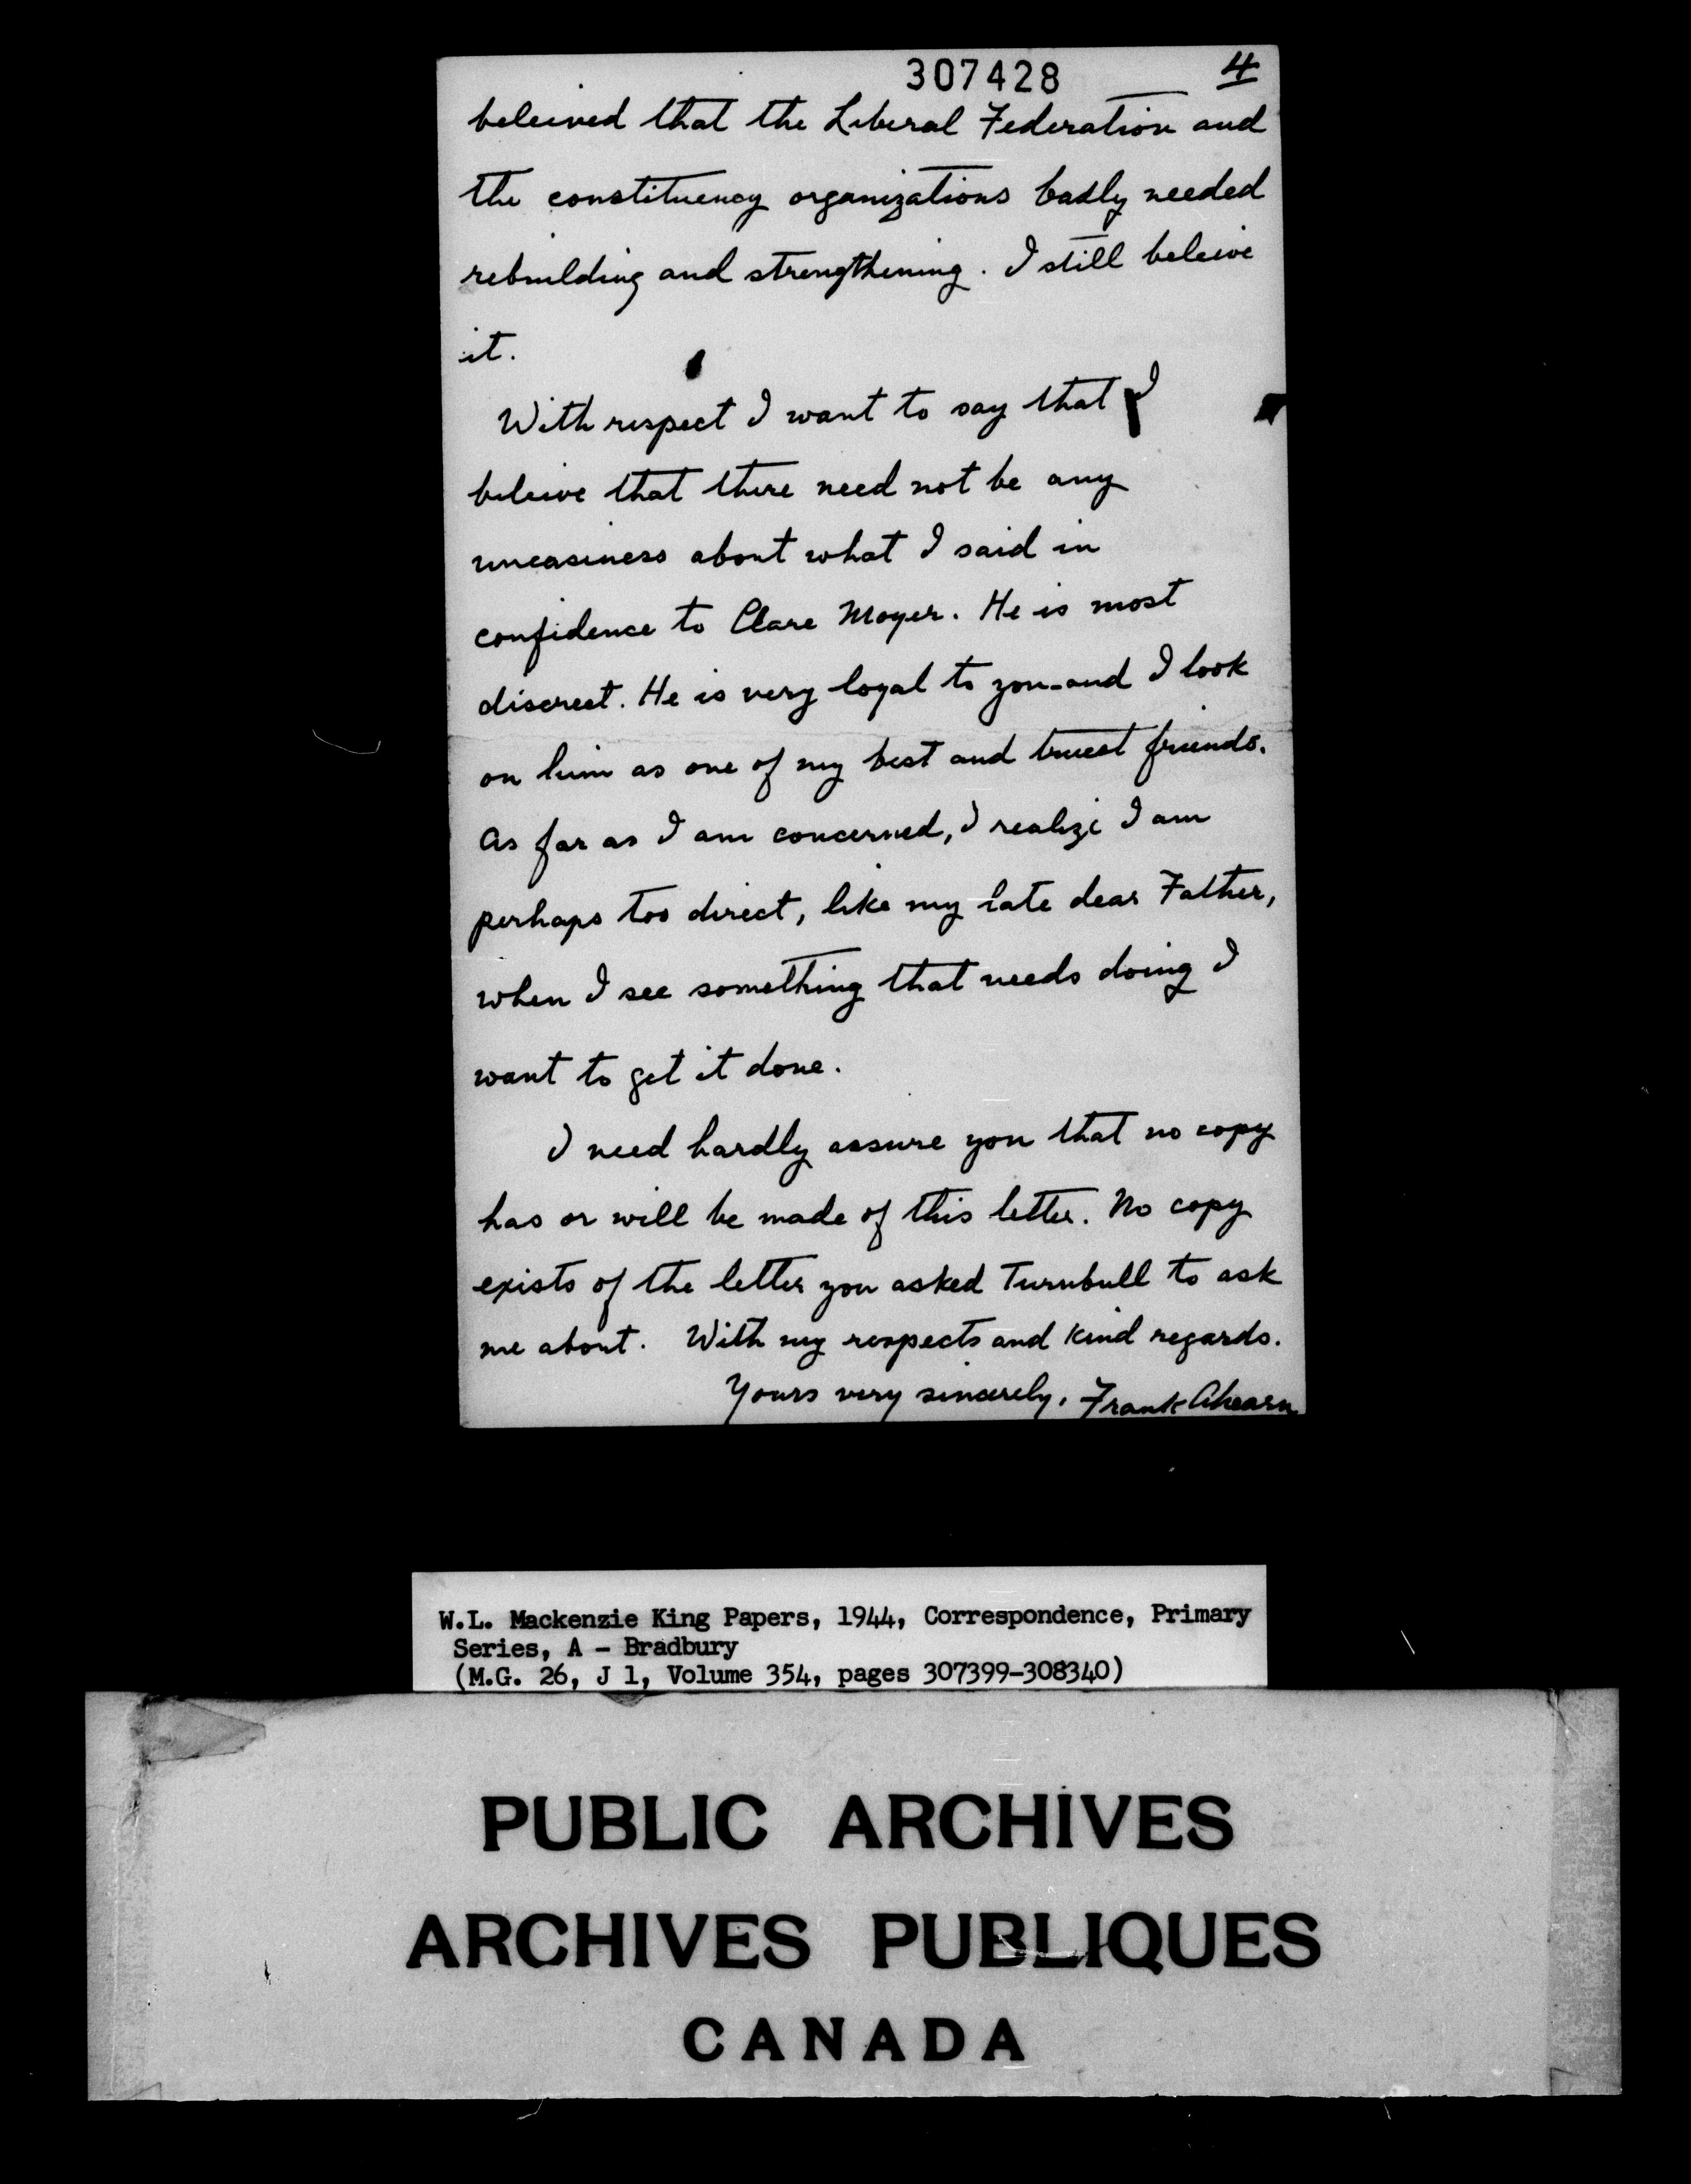 307428
4
beleived that the Liberal Federation and
the constituency organizations badly needed
rebuilding and strengthening. I still beleive
it.
With respect I want to say that I
beleive that there need not be any
uneasiness about what I said in
confidence to Clare Moyer. He is most
discreet. He is very loyal to you - and I look
on him as one of my best and truest friends.
As far as I am concerned, I realize I am
perhaps too direct, like my late dear Father,
when I see something that needs doing I
want to get it done.
I need hardly assure you that no copy
has or will be made of this letter. No copy
exists of the letter you asked Turnbull to ask
me about. With my respects and kind regards.
Yours very sincerely, Frank Ahearn
W.L. Mackenzie King Papers, 1944, Correspondence, Primary
Series, A - Bradbury
(M.G. 26, J 1, Volume 354, pages 307399-308340)
PUBLIC ARCHIVES
ARCHIVES PUBLIQUES
CANADA